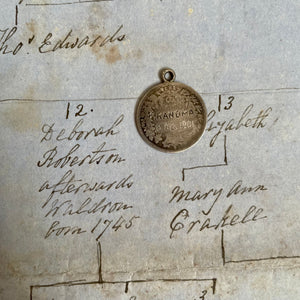 Tho.s Edwards
12.
Deborah
Robertson
afterwards
Waldron
born 1745
KANDMA
1901
13
Elizabeth
Mary Ann
Crakell